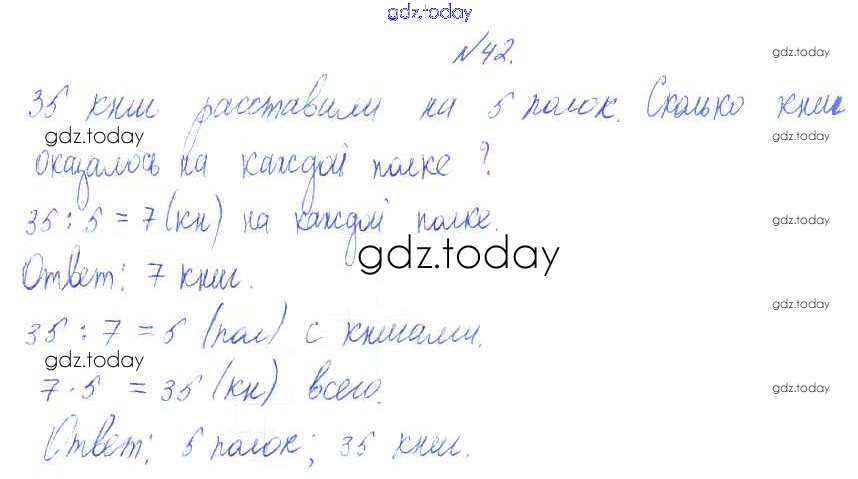 gdz.today
№42.
gdz.today
35 книг расставили на 5 полок. Сколько книг
gdz.today
gdz.today
оказалось на каждой полке?
35 : 5 = 7 (кн) на каждой полке.
gdz.today
gdz.today
Ответ: 7 книг.
gdz.today
35 : 7 = 5 (пол) с книгами.
gdz.today
7 · 5 = 35 (кн) всего.
gdz.today
Ответ: 5 полок; 35 книг.